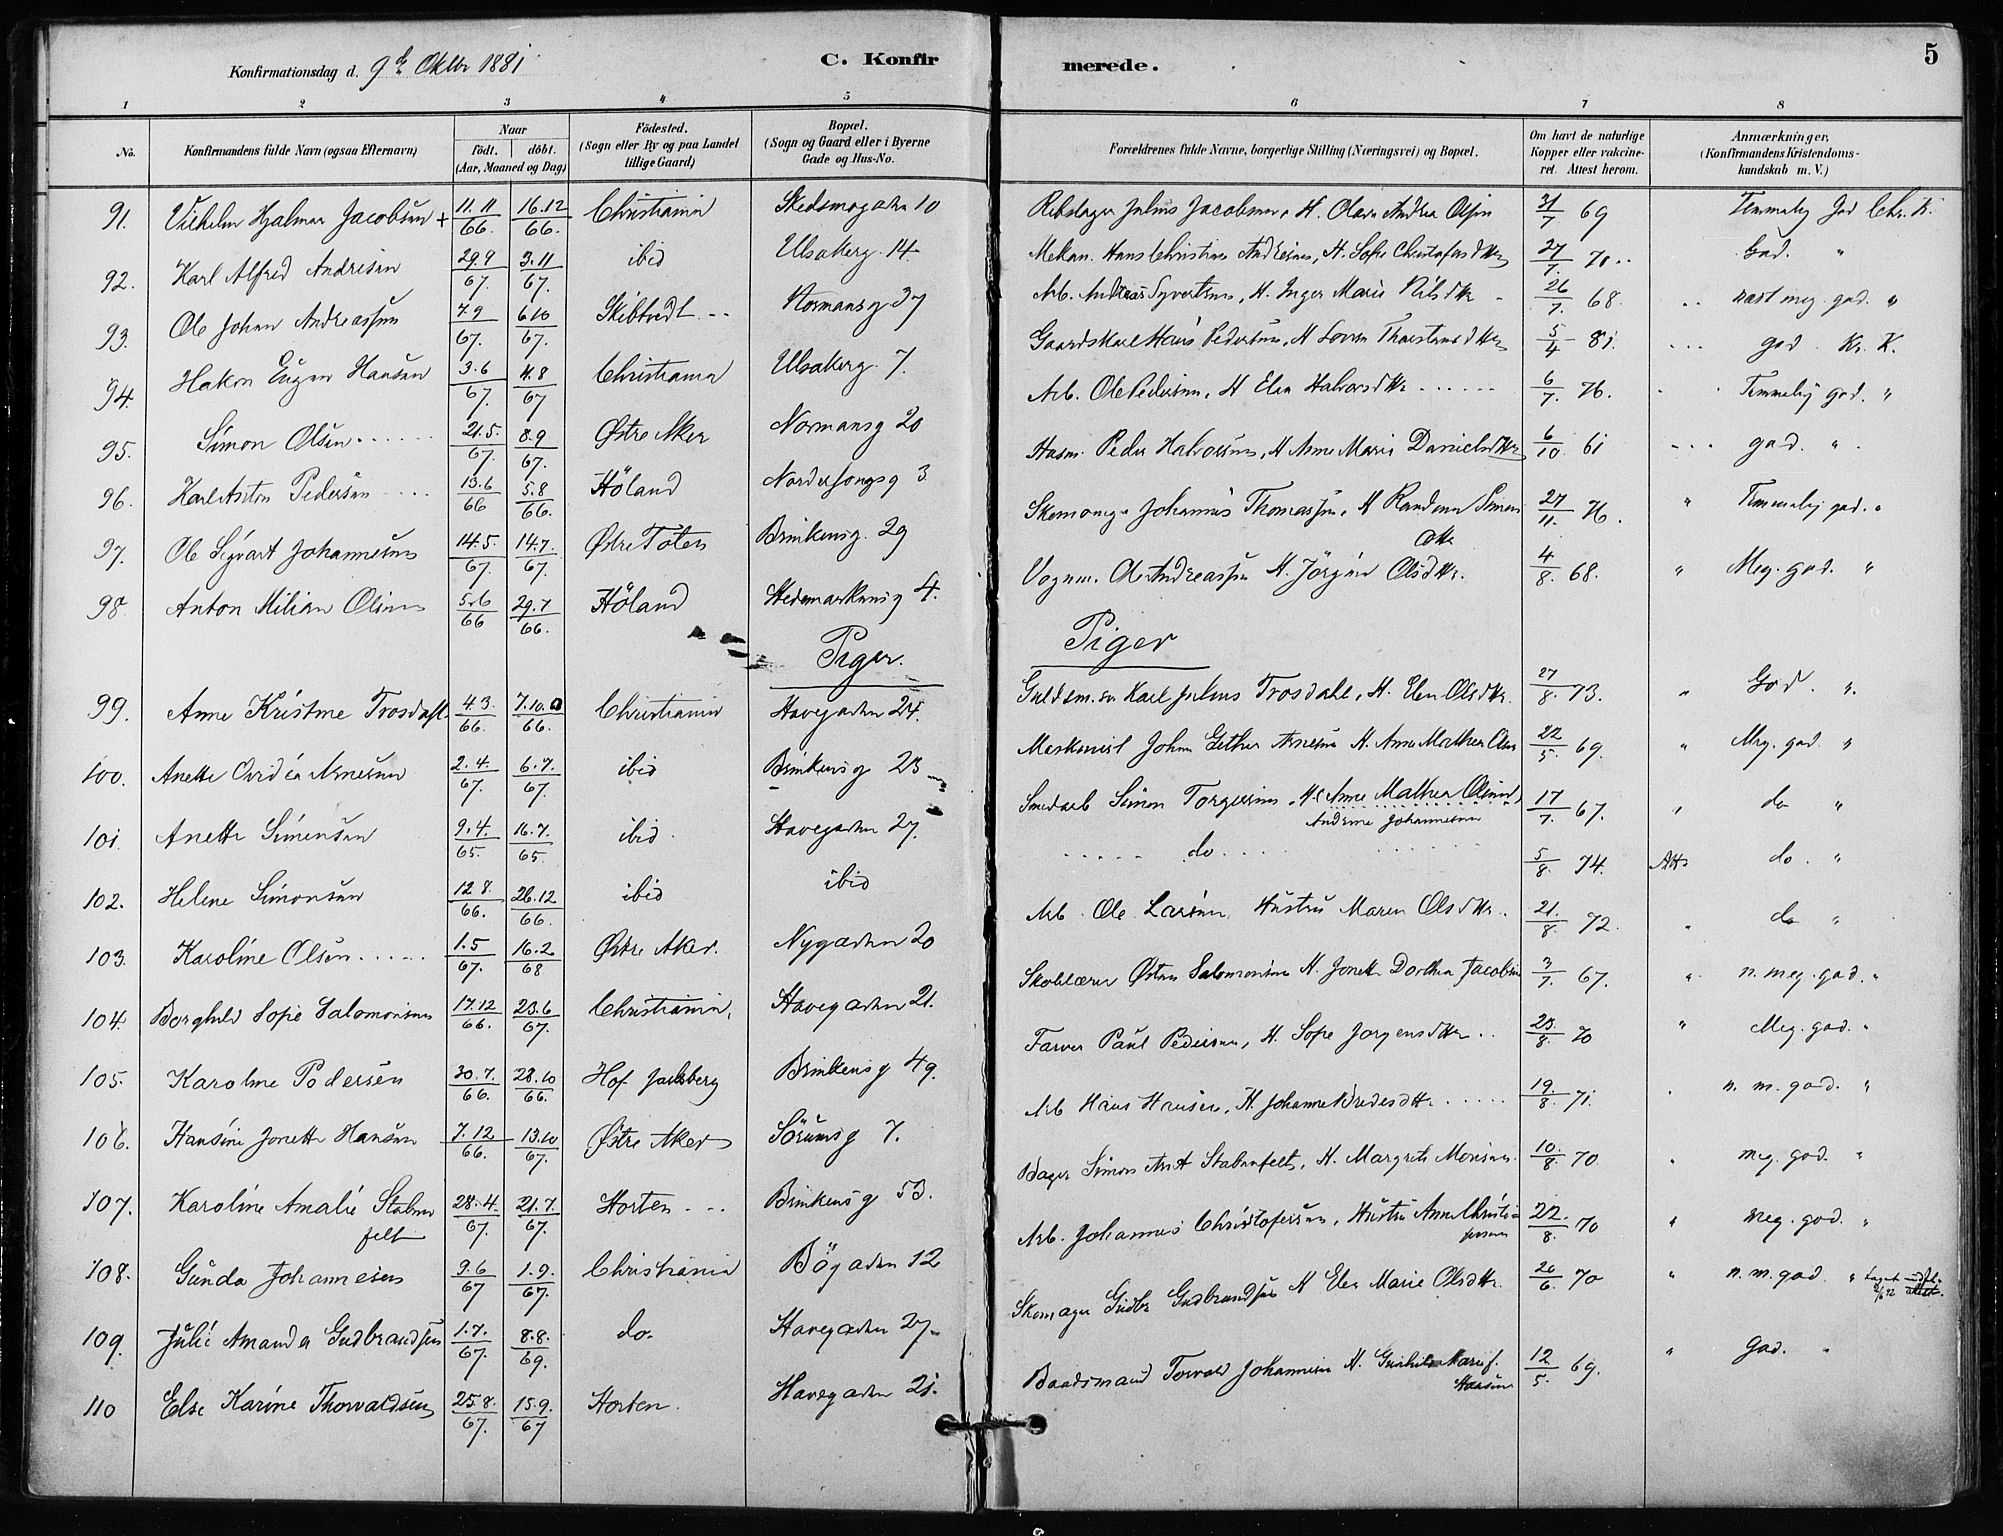 Konfirmationsdag d. 9de Oktbr 1881
C. Konfirmerede.
5
1 2 3 4 5 6 7 8
No. Konfirmandens fulde Navn (ogsaa Efternavn) Naar født. døbt. (Aar, Maaned og Dag) Födested. (Sogn eller By og paa Landet tillige Gaard) Bopæl. (Sogn og Gaard eller i Byerne Gade og Hus-No. Forældrenes fulde Navne, borgerlige Stilling (Næringsvei) og Bopæl. Om havt de naturlige Kopper eller vakcineret. Attest herom. Anmærkninger, (Konfirmandens Kristendomskundskab m. V.)
91. Vilhelm Hjalmar Jacobsen + 11.11/66. 16.12/66. Christiania 10 Rebslager Julius Jacobsen, H. Olava Andrea Olsen 31/7 69 Temmelig God Chr. K.
92. Karl Alfred Andresen 29.9/67. 3.11/67. ibid Ulsakerg. 14 Mekan. Hans Christian Andresen, H. Sofie Christofersdttr 27/7. 70.. God. "
93. Ole Johan Andreassen 7.9/67. 6.10/67. Skibtvedt - - Normansg 37 Arb. Andreas Syvertsen, H. Inger Marie Nilsdttr 26/7 68. næst meg. god. "
94. Hakon Eugen Hansen 3.6/67. 4.8/67 Christiania Ulsakerg. 7. Gaardskarl Hans Pedersen, H Lovise Thorstensdttr 5/4 81. god. Kr. K.
95. Simon Olsen . . . . . 21.5./67. 8.9/67. Østre Aker Normansg 20 Arb. Ole Pedersen, H Elen Halvorsdttr . . . . . 6/7. 76. Temmelig god. "
96. Karl Anton Pedersen . . . 13.6/66 5.8/66. Höland Nordersongsg 3 Husm. Peder Halvorsen, H Anne Marie Danielsdttr 6/10 61 - - - god. "
97. Ole Sigvart Johannesen 14.5./67. 14.7./67. Østre Toten Brinkensg. 29 Skomager Johannes Thomassen, H Randine Simensdttr 27/11. 76. " Temmelig god. "
98. Anton Milian Olsen 5.6/66 29.7/66. Höland Hedemarkensg 4. Vognm. Ole Andreassen H. Jörgine Olsdttr. 4/8. 68. " Meg. god. "
Piger. Piger
99. Anne Kristine Trosdahl 4.3./66. 7.10./66. Christiania Havegaden 24. Guldsm.sv Karl Julius Trosdahl, H. Elen Olsdttr. 27/8. 73. " God. ".
100. Anette Ovidia Arnesen 2.4./67. 6.7./67. ibid Brinkensg 23 Maskinist Johan Arnesen H. Anne Mathea 22/5. 69. " Meg. god. "
101. Anette Simensen 9.4./65. 16.7./65. ibid. Havegaden 27. Smedarb Simon Torgersen, H. Anne Mathea 17/7. 67. " do "
Andrine Johannesen
102. Helene Simonsen 12.8./66. 26.12/66. ibid ibid . . . . . do . . . . 5/8. 74. Atts do. "
103. Karoline Olsen . . . . . 1.5/67. 16.2./68 Østre Aker. Nygaden 20 Arb. Ole Larsen, Hustru Maren Olsdttr. 21./8. 72. do "
104. Borghild Sofie Salomonsen 17.12/66. 23.6/67. Christiania, Havegaden 21. Skolelærer Østen Salomonsen H. Jonette Dorthea Jacobsen 3/7. 67. " n. meg. god. "
105. Karoline Pedersen 30.7./66. 28.10/66. Hof. Jarlsberg Brinkensg 49. Farver Paul Pedersen, H. Sofie Jorgensdttr . . 25./8. 70 " Meg. god. "
106. Hansine Jonette Hansen 7.12/66. 13.10/67. Østre Aker Sörumsg 7. Arb Hans Hansen, H. Johanne Bredesdttr . . . . . 19./8. 71. n. m. god. "
107. Karoline Amalie Stabenfelt 28.4./67. 21.7./67. Horten - - - Brinkensg 53. Bager Simon Stabenfelt, H. Margrete Monsen 10./8. 70. meg. god. "
108. Gunda Johannesen 9.6/67 1.9./67. Christiania Bögaden 12 Arb. Johannes Christofersen, Hustru Anne Christiansen 22./8. 70 " meg. god. "
109. Julie Amanda Gudbrandsen 1.7./67. 8.8./69. do. Havegaden 27. Skomager Gudbr Gudbrandsen H Elen Marie Olsdttr. 20/6. 70 " n. m. god. " udst. attest.
110 Else Karine Thorvaldsen 25.8./67. 15.9./67 Horten. Havegaden 21. Baadsmand Torvald Johannesen H. Gunhild Hansen 12/5. 69. " god. "